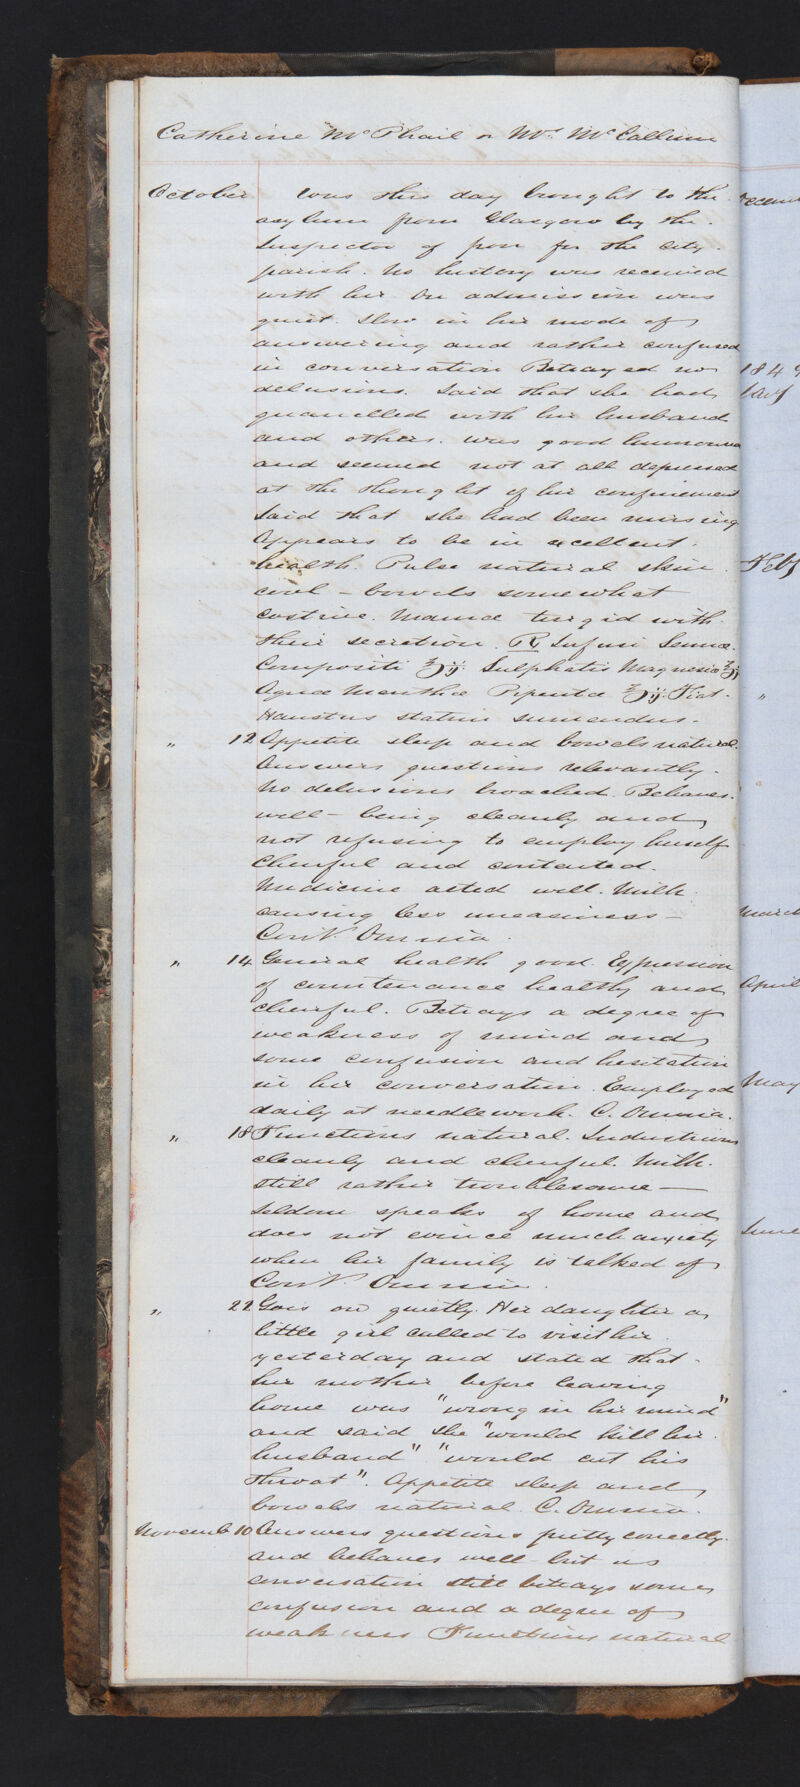 Catherine McPhail or Mrs McCallum
October Was this day brought to the
asylum from Glasgow by the
Inspector of poor for the City
parish. No history was received
with her. On admission was
quiet. Slow in her mode of
answering and rather confused
in conversation Betrayed no
delusions. Said that she had
quarrelled with her husband
and others. Was good humoured
and seemed not at all depressed
at the thought of her confinement
Said that she had been nursing
Appears to be in excellent
health. Pulse natural skin
cool – bowels somewhat
costive. Mamma turgid with
their secretion. ℞ Infusi Sennæ
Compositi ℥ij. Sulphatis Magnesia ℥ij
Aquæ Menthæ Piperitæ ℥ij. Fiat.
Haustus statim sumendus.
" 12 Appetite sleep and bowels natural.
Answers questions relevantly.
No delusions broached. Behaves
well – being cleanly and
not refusing to employ herself
Cheerful and contented.
Medicine acted well. Milk
causing less uneasiness –
Cont. Omnia.
" 14 General health good. Expression
of countenance healthy and
cheerful. Betrays a degree of
weakness of mind and
some confusion and hesitation
in her conversation. Employed
daily at needlework. C. Omnia.
" 18 Functions natural. Industrious
cleanly and cheerful. Milk
still rather troublesome –
Seldom speaks of home and
does not evince much anxiety
when her family is talked of
Cont. Omnia.
" 22 Goes on quietly. Her daughter a
little girl called to visit her
yesterday and stated that
her mother before leaving
home was "wrong in her mind"
and said she "would kill her
husband" "would cut his
throat". Appetite sleep and
bowels natural. C. Omnia.
Novemb 10 Answers questions pretty correctly.
and behaves well but
conversation still betrays some
confusion and a degree of
weakness Functions natural
Decem
1849
Jany
Feby
"
March
April
May
June